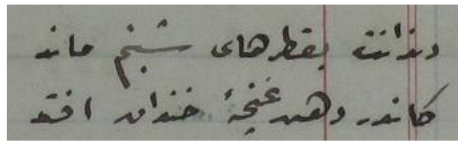 دندانت بقطرهای شبنم ماند
کاندر دهن غنچهٔ خندان افتد